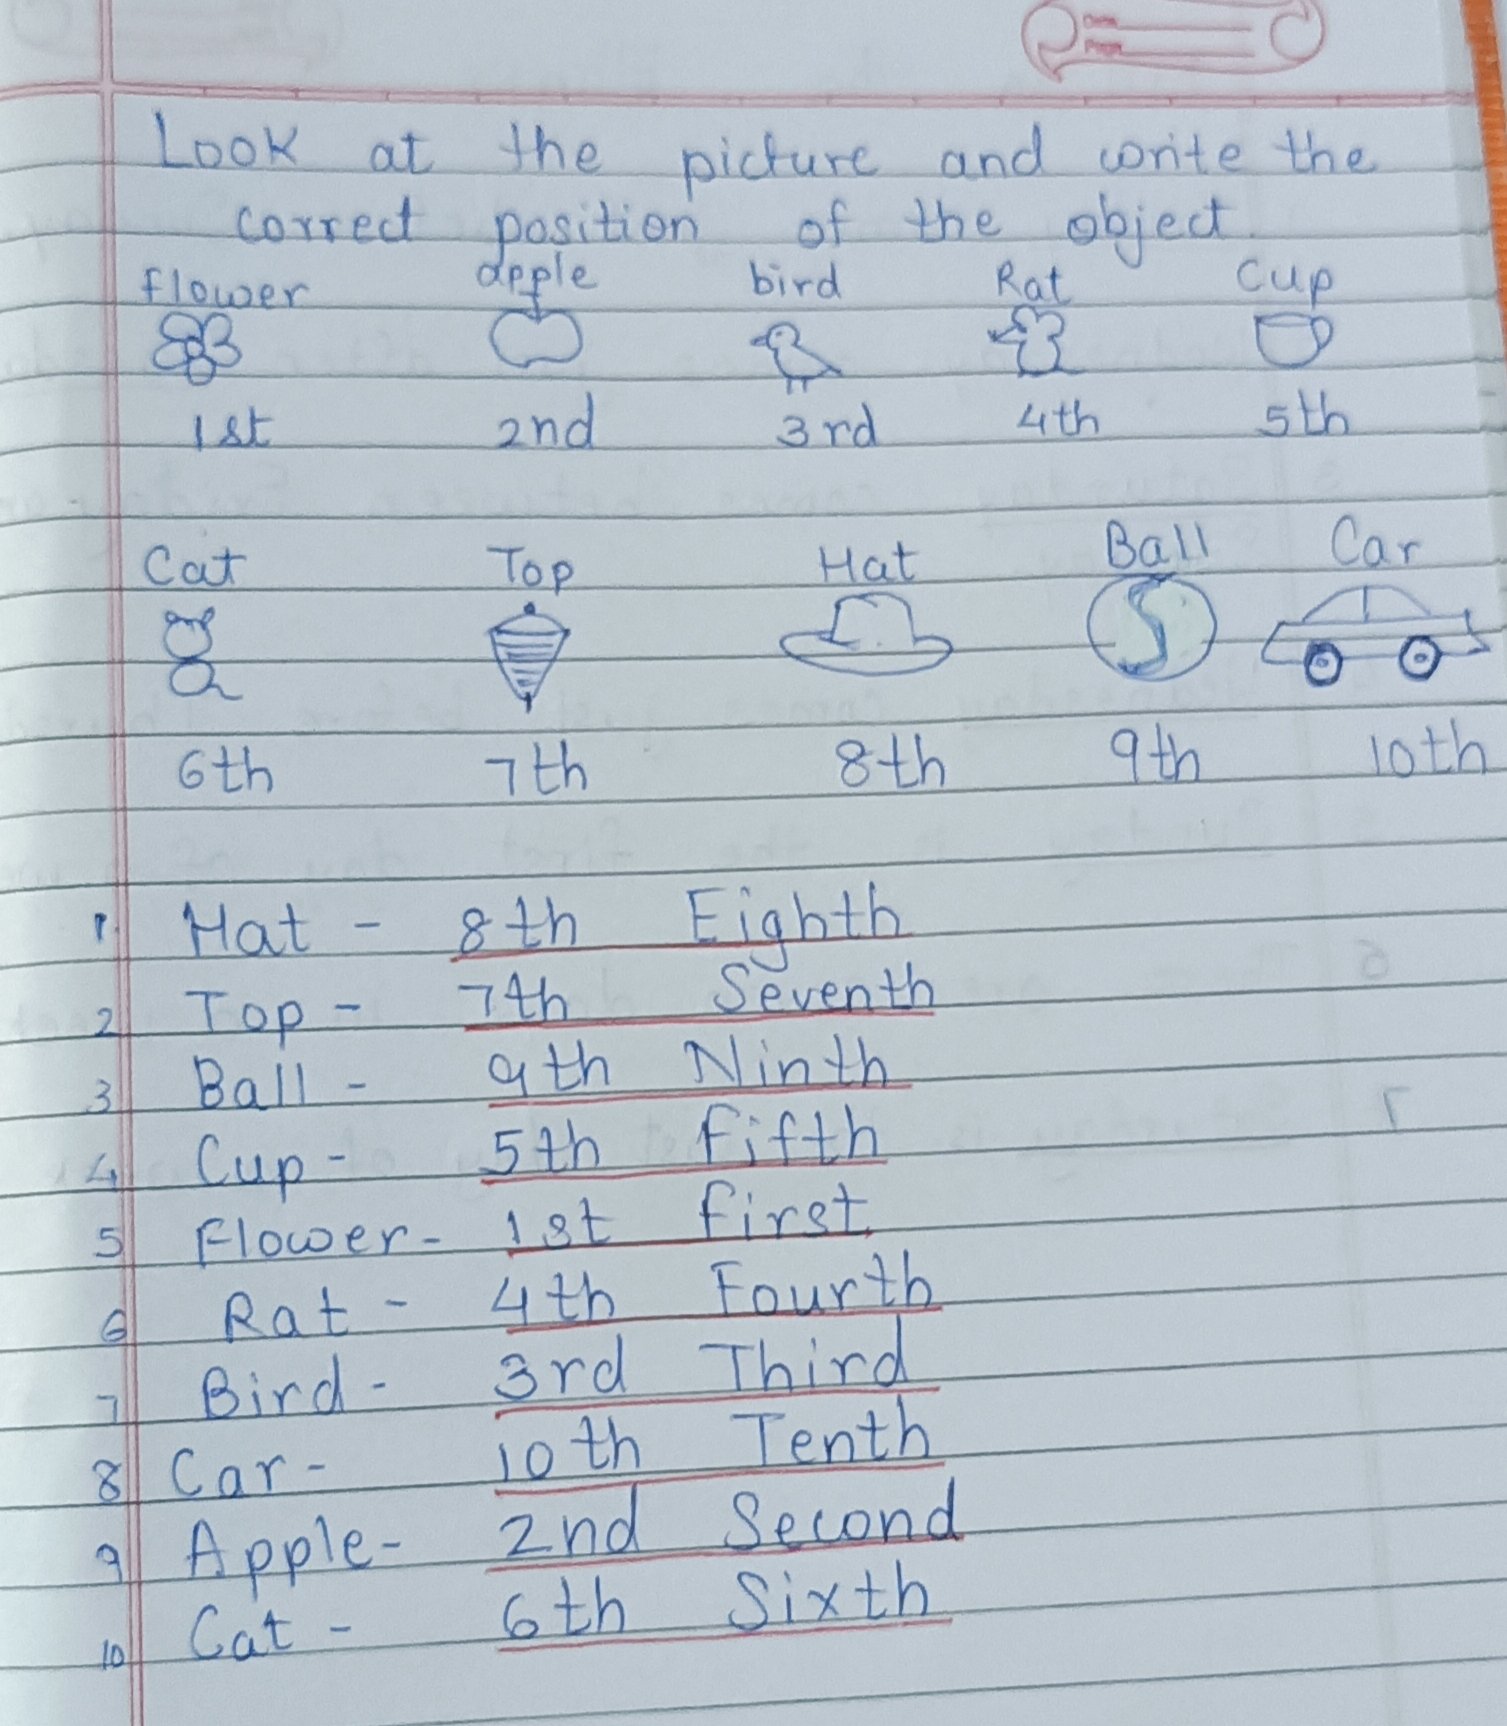 Date
Page
Look at the picture and write the
correct position of the object
Flower apple bird Rat Cup
1st 2nd 3rd 4th 5th
Cat Top Hat Ball Car
6th 7th 8th 9th 10th
1. Hat - 8th Eighth
2 Top - 7th Seventh
3 Ball - 9th Ninth
4 Cup - 5th Fifth
5 Flower - 1st First
6 Rat - 4th Fourth
7 Bird - 3rd Third
8 Car - 10th Tenth
9 Apple - 2nd Second
10 Cat - 6th Sixth